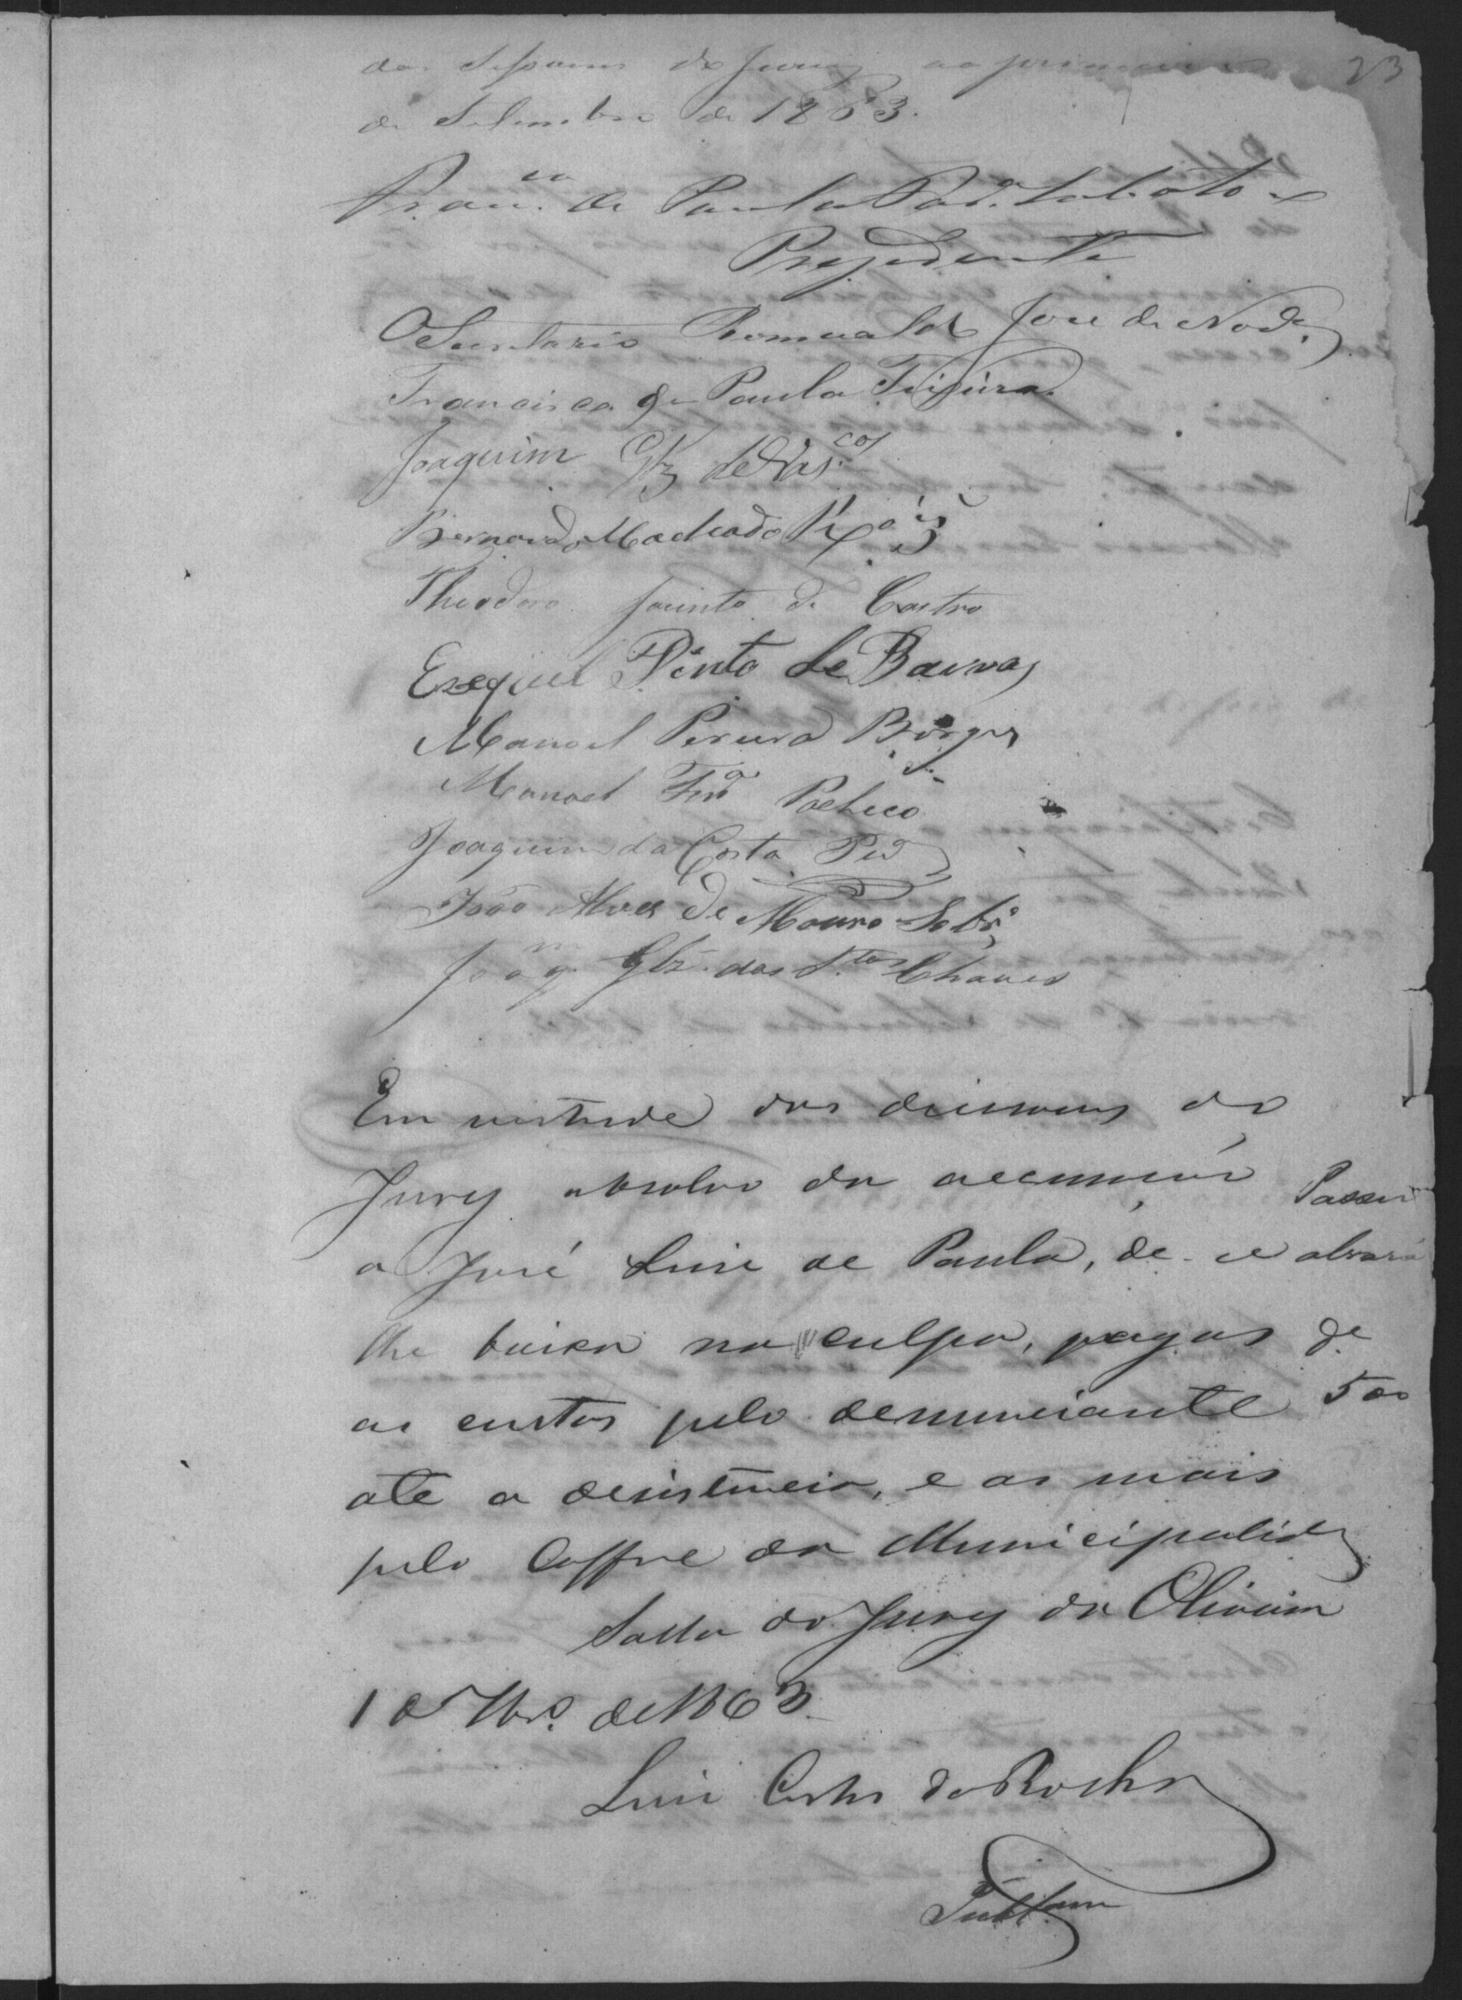 das Sessoens do Jury ao primeiro 23
de Setembro de 1863.
Fran.co de Paula Lobato
Prezidente
O Secretario Romualdo José de
Francisco de Paula Teixeira
Joaquim Glz de Vas.cos
Bernardo Machado
Theodoro Jacinto de Castro
Ezequiel Pinto de Barros
Manoel Pereira Borges
Manoel Fer.a Pacheco
Joaquim da Costa
João Alves de Moura Sobr.o
Joaq.m Glz. dos S.tos Chaves
Em virtude das decisoens do
Jury absolvo da accusação
a José Luis de Paula, de-se
lhe baixa na culpa, pagas
as custas pelo denunciante
até a desistencia, e as mais
pelo Coffre da Municipalid.e
Salla do Jury da Oliveira
1 de 7br.o de 1863
Luis Carlos da Rocha
Passei
alvará
de
500